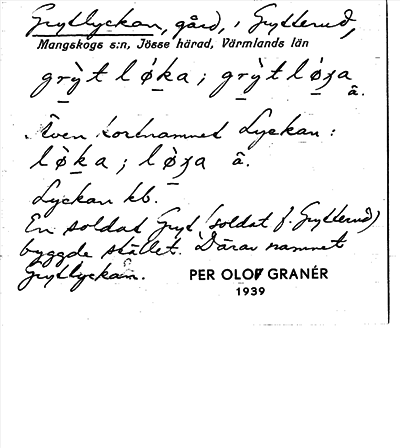 Grytlyckan, gård, i Grytterud,
Mangskogs s:n, Jösse härad, Värmlands län
grỳt lö̀ka; grỳt lö̀ʒa
â.
Även kortnamnet Lyckan:
lö̀ka; lö̀ʒa â.
Lyckan kb.
En soldat Gryt (soldat f. Grytterud)
byggde stället. Därav namnet
Grytlyckan.
PER OLOF GRANÉR
1939